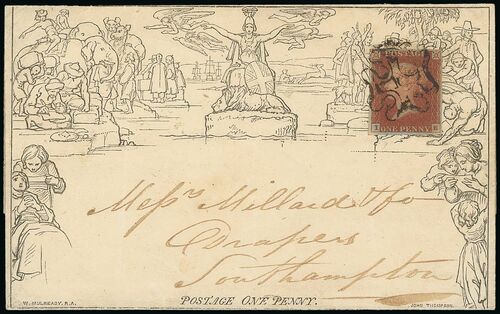 POSTAGE
ONE PENNY
Messrs Millard & Co
Drapers
Southampton
POSTAGE ONE PENNY.
W. MULREADY. R.A.
JOHN THOMPSON.